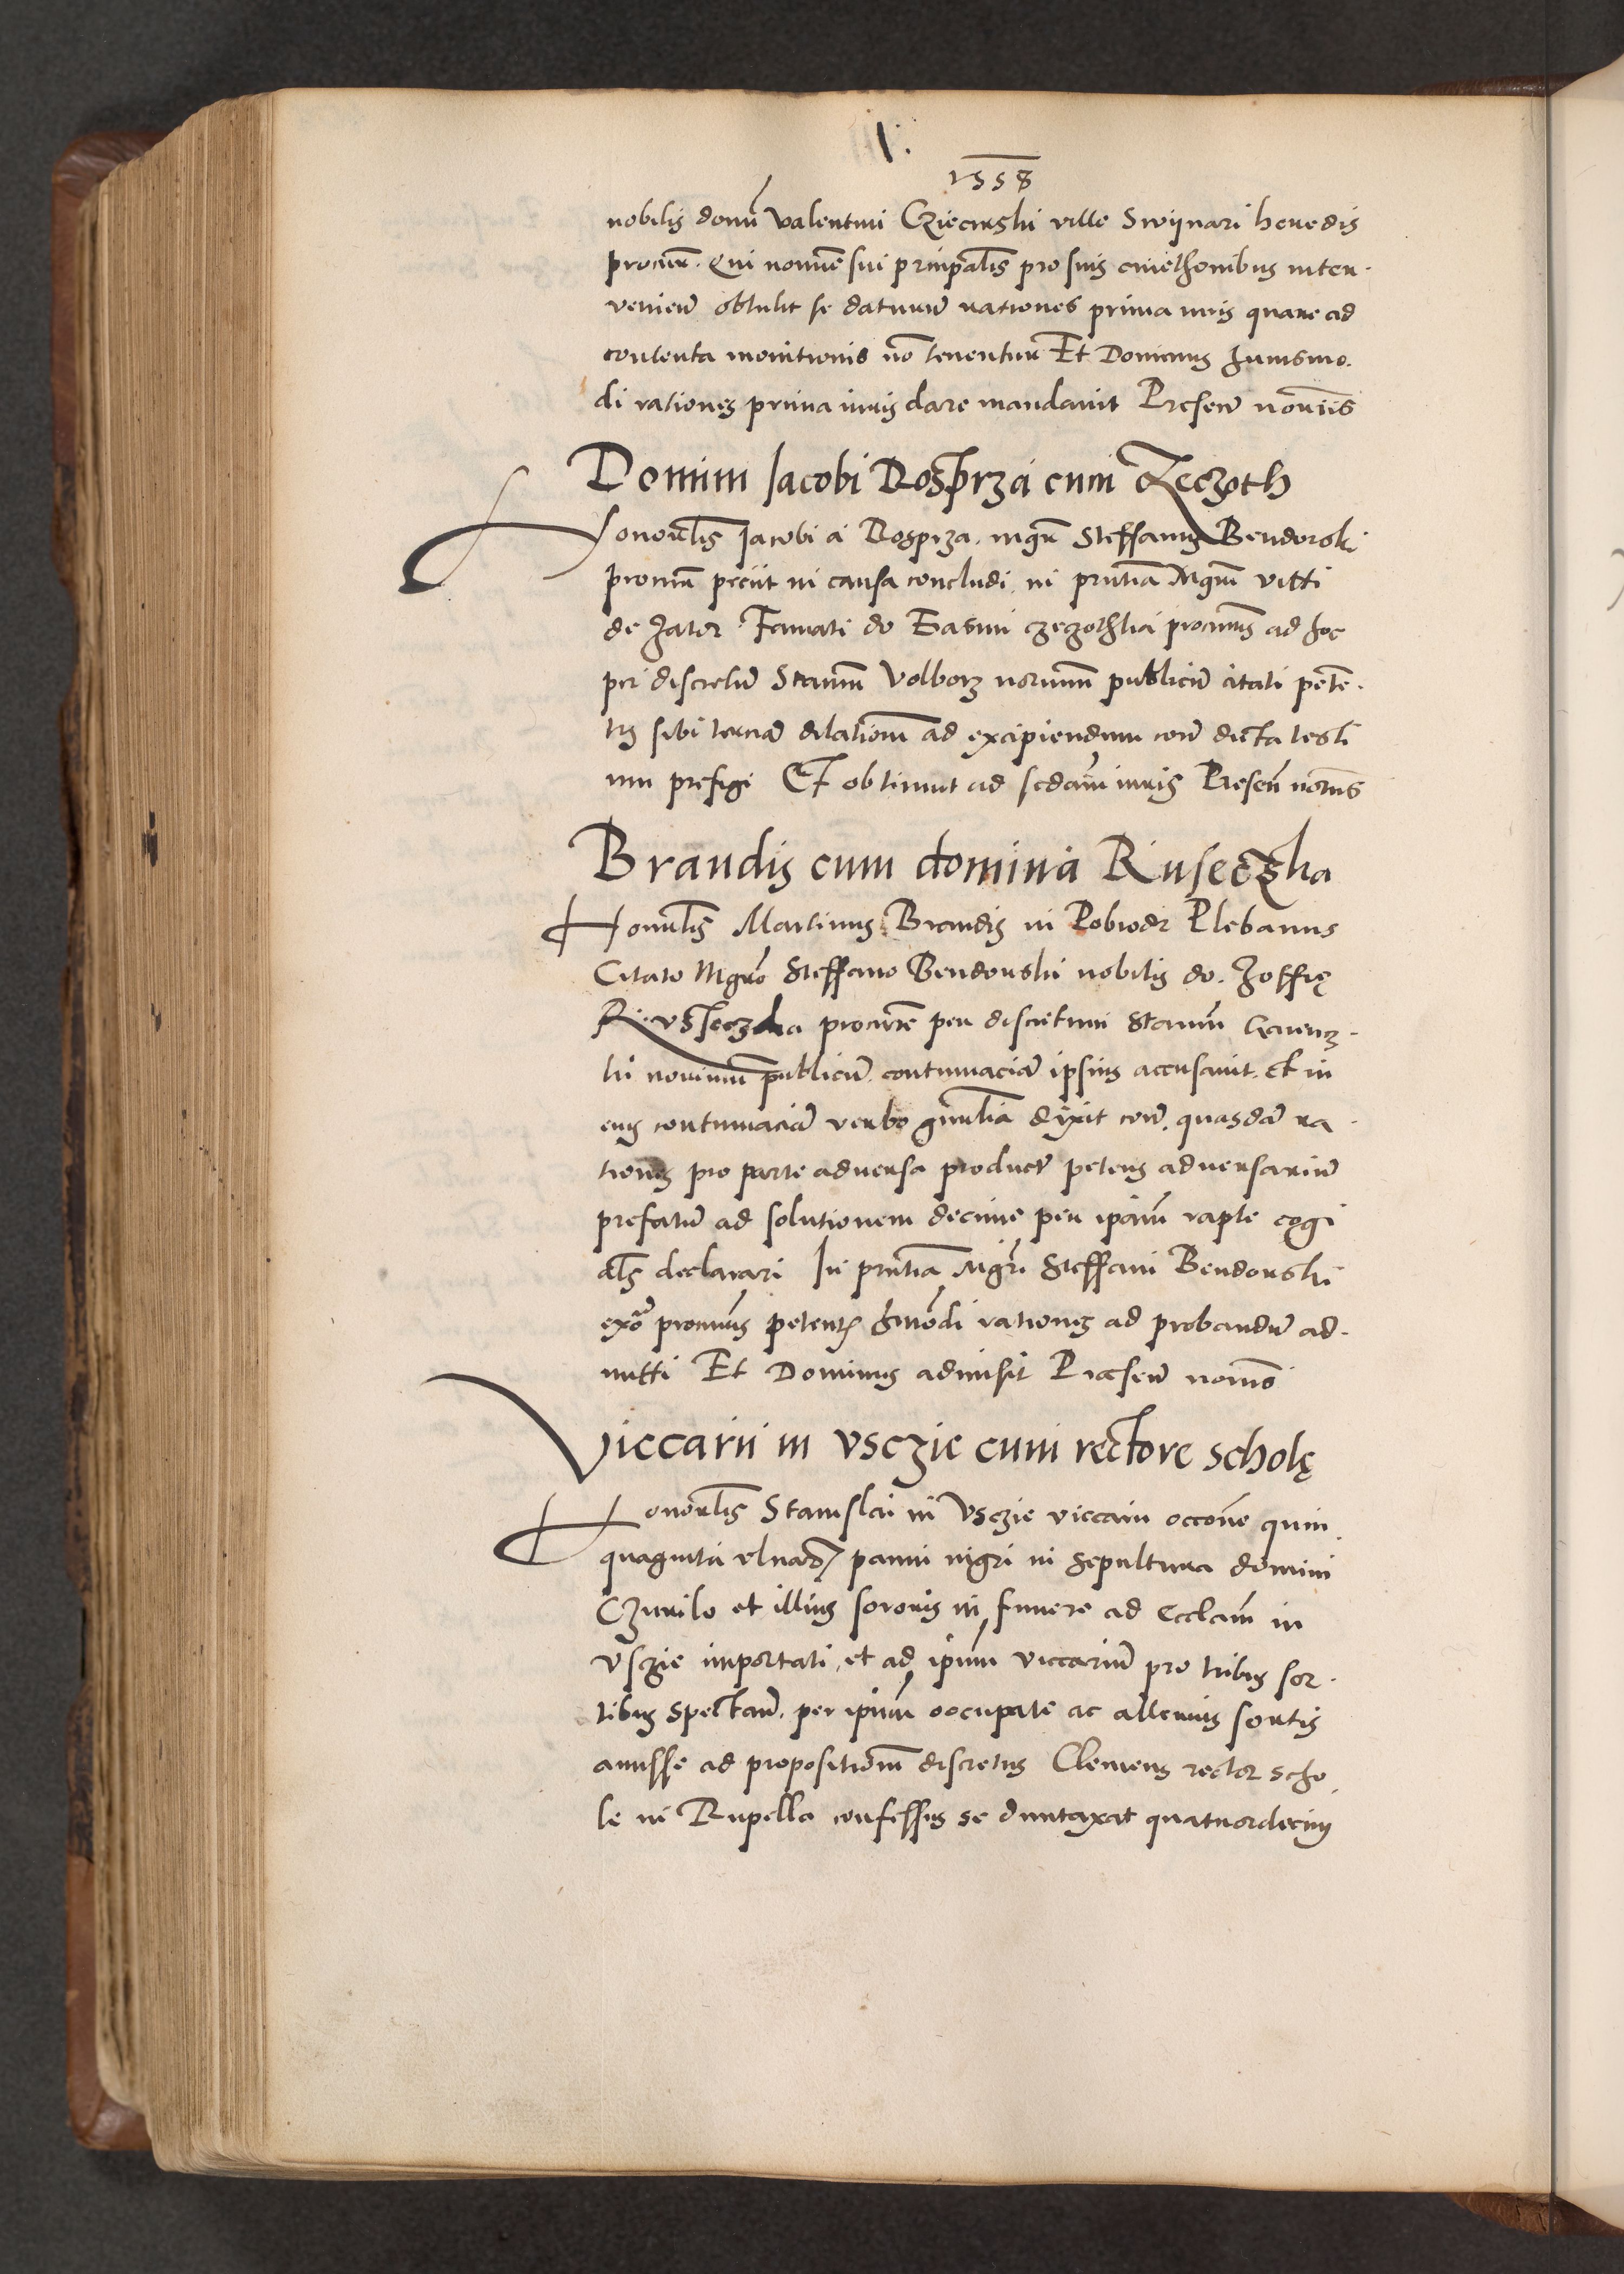 1558
nobilis domi Valentini Cziecinski ville Swijnari heredis
procur. Qui nomine sui principalis pro suis cmethonibus inter.
venien obtulit se daturum rationes prima iuris quare ad
contenta monitionis no tenentur Et Dominus huiusmo.
di rationes prima iuris dare mandavit Presen notariis
Domini Jacobi Rosprza cum Zeczoth
Honorabilis Jacobi a Rosprza. mgr Steffanus Bendorski
procur peciit in causa concludi. in pntia Mgri Vitti
de Zator Famati do procuris ad hoc
per discretum Stanm Volborz notarium publicum citati peten.
tis sibi terciam dilationem ad excipiendum con dicta testi
um prefigi Et obtinuit ad sedam iuris Presen notariis
Brandis cum domina Ruseczka
Honorabilis Martinus Brandis in Plebanus
Citato Mgro Steffano Bendorski nobilis do. Zoffię
Russeczka procure per discretum Stanm
ki notarium publicum. contumaciam ipsius accusavit. et in
eius contumaciam verbo gnralia dixit con. quasdam ra.
tiones pro parte adversa product petens adversarium
prefatum ad solutionem decime per ipsam rapte cogi
als declarari In pntia Mgri Steffani Bendorski
procuris petentis hmodi rationes ad probandum ad.
mitti Et Dominus admisit Presen notariis
Viccarii in Usczie cum rectore scholę
Honorabilis Stanislai in Usczie viccarii occone quin
quaginta ulnar panni nigri in sepultura domini
Czurilo et illius sororis in funere ad Ecclam in
Usczie importati, et ad ipsum viccarium pro tribus sor.
tibus spectan. per ipsum occupate ac alterius sortis
amisse ad propositionem discretus Clemens rector scho
le in Rupella confessus se duntaxat quatuordecim